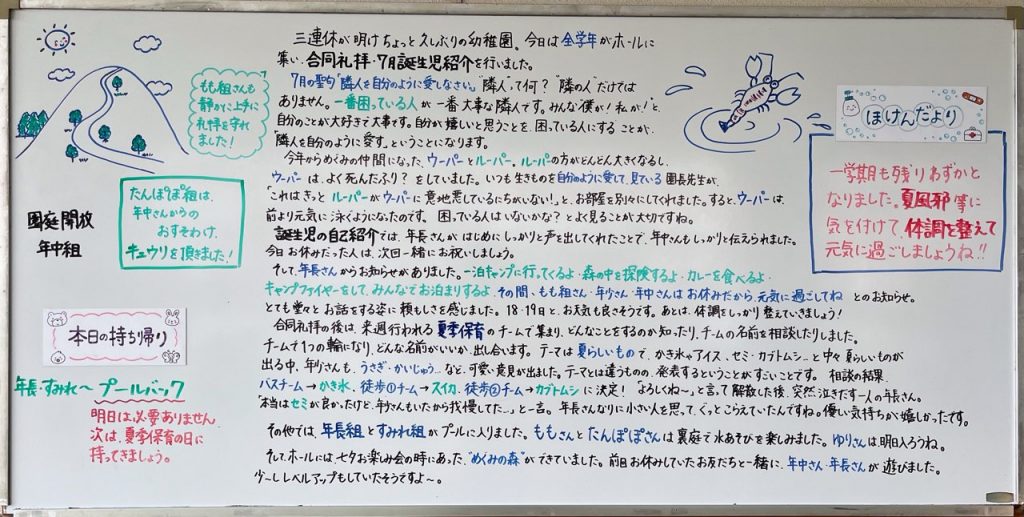 もも組さんも
静かで上手に
礼拝を守れ
ました!
園庭開放
年中組
たんぽぽ組は、
年中さんからの
おすそわけ、
キュウリを頂きました!
本日の持ち帰り
年長・すみれ〜プールバック
明日は必要ありません
次は、夏季保育の日に
持ってきましょう。
三連休が明けちょっと久しぶりの幼稚園。今日は全学年がホールに
集い、合同礼拝・7月誕生児紹介を行いました。
7月の聖句“隣人を自分のように愛しなさい。”隣人”って何?“隣の人”だけでは
ありません。一番困っている人が一番大事な隣人です。みんな「僕が!私が!」と、
自分のことが大好きで大事です。自分が嬉しいと思うことを、困っている人にすることが、
“隣人を自分のように愛す。”ということになります。
今年からめぐみの仲間になった、ウーパーとルーパー。ルーパーの方がどんどん大きくなるし、
ウーパーは、よく死んだふり?をしていました。いつも生きものを自分のように愛して、見ている園長先生が、
「これはきっとルーパーがウーパーに意地悪しているにちがいない!」と、お部屋を別々にしてくれました。するとウーパーは、
前より元気に泳ぐようになったのです。困っている人はいないかな?とよく見ることが大切ですね。
誕生児の自己紹介では、年長さんがはじめにしっかりと声を出してくれたことで、年中さんもしっかりと伝えられました。
今日お休みだった人は、次回一緒にお祝いしましょう。
そして、年長さんからお知らせがありました。一泊キャンプに行ってくるよ・森の中を探険するよ・カレーを食べるよ
キャンプファイヤーをして、みんなでお泊まりするよ、その間、もも組さん・年少さん・年中さんはお休みだから、元気に過ごしてね とのお知らせ。
とても堂々とお話をする姿に頼もしさを感じました。18・19日と、お天気も良さそうです。あとは、体調をしっかり整えていきましょう!
合同礼拝の後は、来週行われる夏季保育のチームで集まり、どんなことをするのか知ったり、チームの名前を相談したりしました。
チームで1つの輪になり、どんな名前がいいか、出し合います。テーマは夏らしいもので、かき氷やアイス、セミ・カブトムシ…と中々夏らしいものが
出る中、年少さんも、うさぎ・かいじゅう…など、可愛い意見が出ました。テーマとは違うものの、発表するということがすごいことです。相談の結果、
バスチーム→かき氷、徒歩①チーム→スイカ、徒歩②チーム→カブトムシに決定!「よろしくね〜」と言って解散した後、突然泣きだす一人の年長さん。
「本当はセミが良かったけど、年少さんもいたから我慢してた…」と一言。年長さんなりに小さい人を思って、ぐっとこらえていたんですね。優しい気持ちが嬉しかったです。
その他では、年長組とすみれ組がプールに入りました。ももさんとたんぽぽさんは裏庭で水あそびを楽しみました。ゆりさんは明日入ろうね。
そして、ホールには七夕お楽しみ会の時にあった、“めぐみの森”ができていました。前日お休みしていたお友だちと一緒に、年中さん・年長さんが遊びました。
少〜しレベルアップもしていたそうですよ〜。
ほけんだより
一学期も残りわずかと
なりました。夏風邪等に
気を付けて、体調を整えて
元気に過ごしましょうね!!